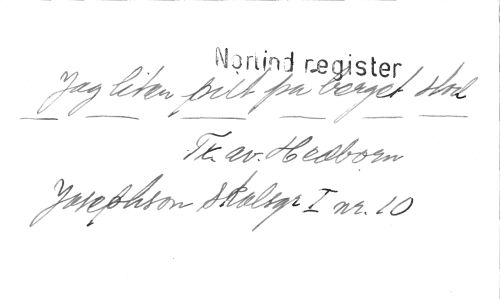 Norlind register
Jag liten pilt på berget stod
Tk. av. Hedborn
Josephson Skolsgr I nr. 10